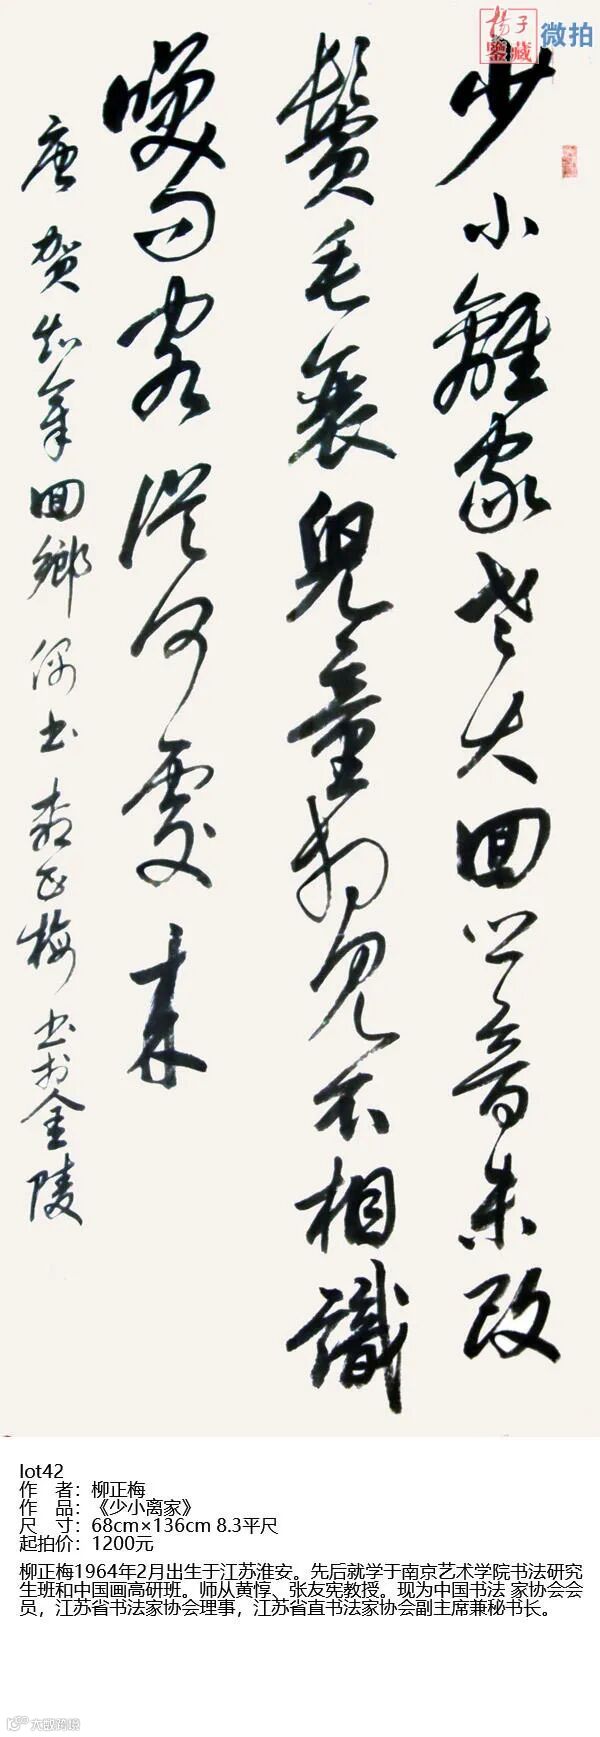 揚子
鑒藏
微拍
少小離家老大回鄉音未改
鬓毛衰兒童相見不相識
咲问客從何處来
唐贺知章回鄉偶书柳正梅书於金陵
lot42
作 者：柳正梅
作 品：《少小离家》
尺 寸：68cm×136cm 8.3平尺
起拍价：1200元
柳正梅1964年2月出生于江苏淮安。先后就学于南京艺术学院书法研究
生班和中国画高研班。师从黄惇、张友宪教授。现为中国书法 家协会会
员，江苏省书法家协会理事，江苏省直书法家协会副主席兼秘书长。
大数跨境